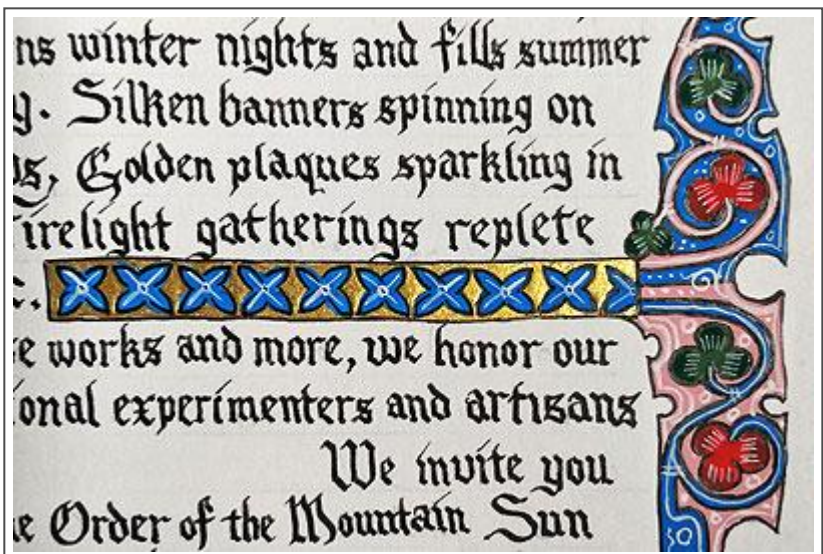 ns winter nights and fills summer
y. Silken banners spinning on
s, Golden plaques sparkling in
irelight gatherings replete
e works and more, we honor our
ional experimenters and artisans
We invite you
e Order of the Mountain Sun